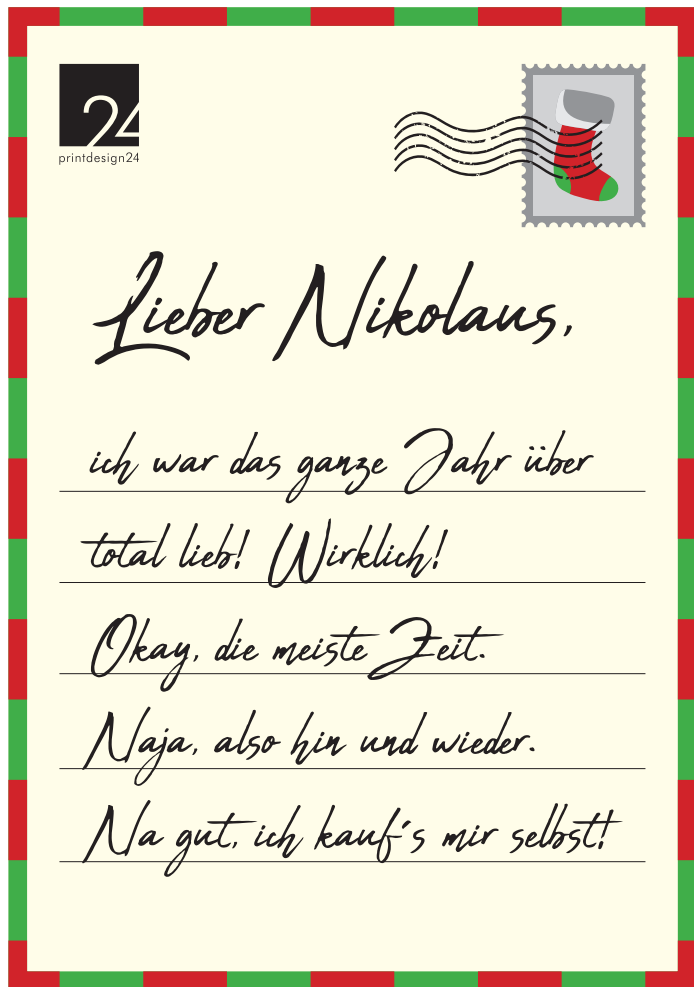 24
printdesign24
Lieber Nikolaus,
ich war das ganze Jahr über
total lieb! Wirklich!
Okay, die meiste Zeit.
Naja, also hin und wieder.
Na gut, ich kauf's mir selbst!